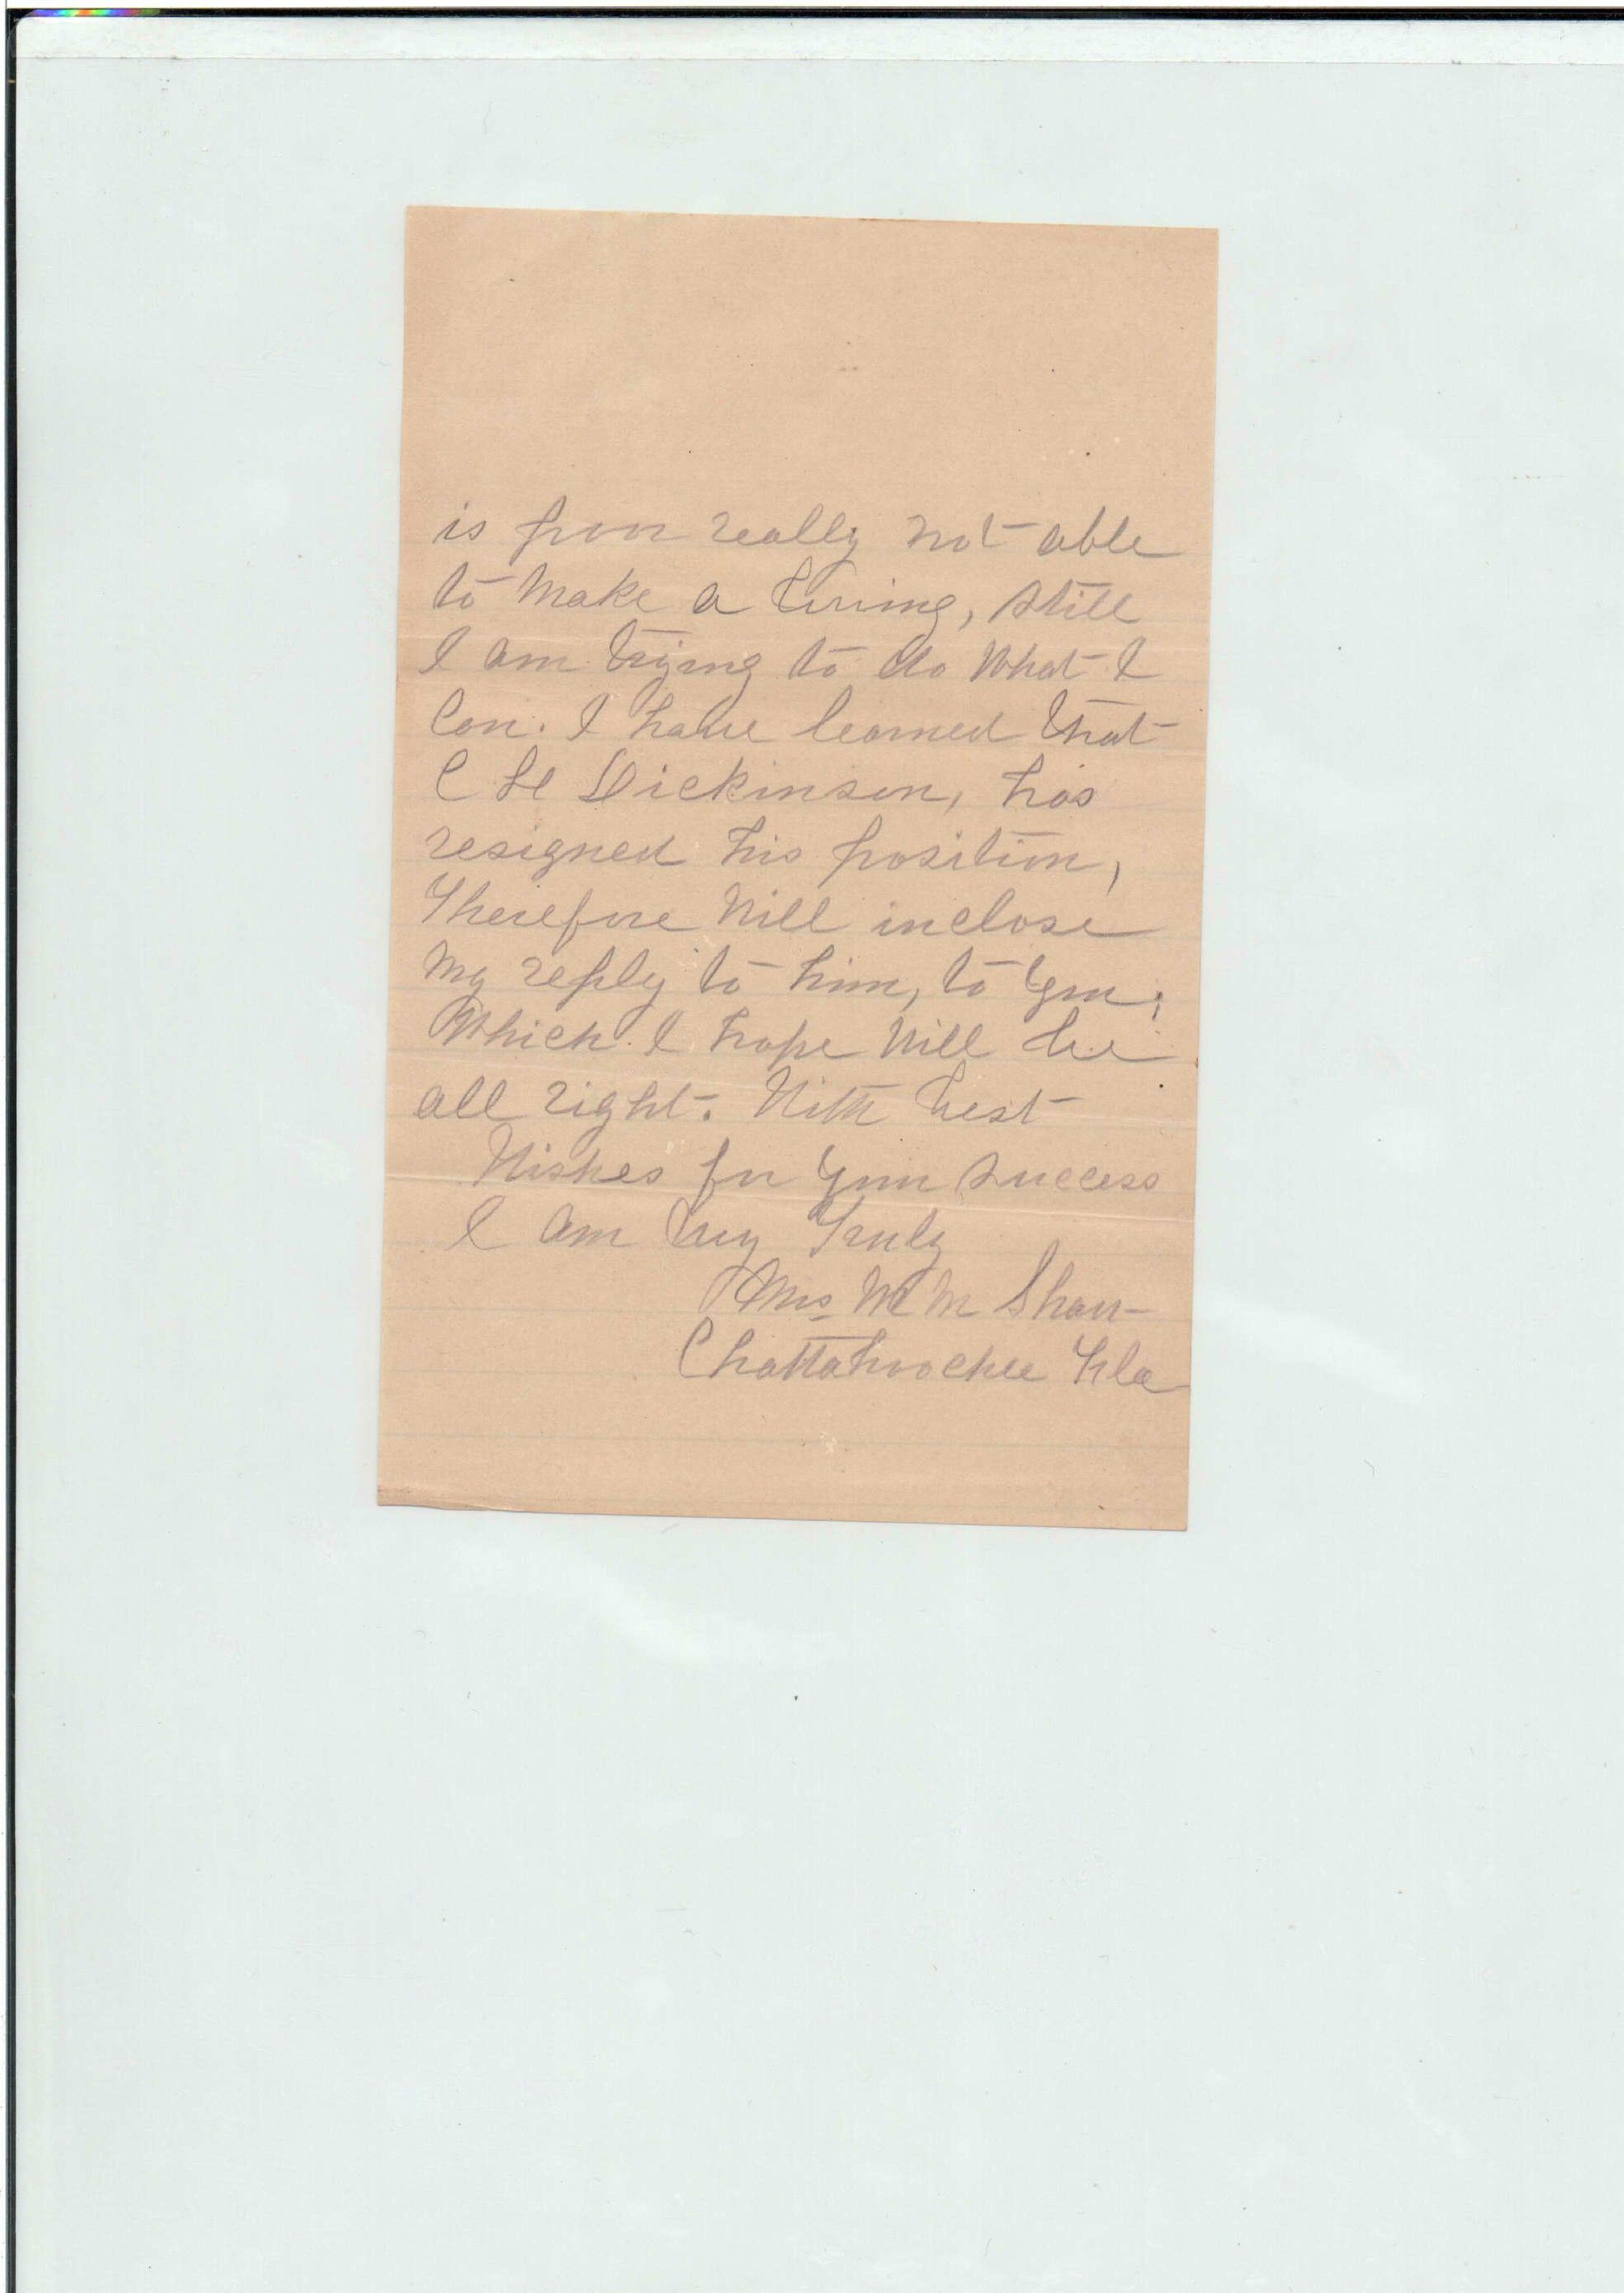 is poor really not able
to Make a living, still
I am trying to do What I
Can. I have learned that
C H Dickinson, has
resigned his position,
Therefore Will inclose
My reply to him, to you,
Which I hope Will be
all right. With best
Wishes for your success
I am Very Truly
Mrs M M Shaw
Chattahoochee Fla